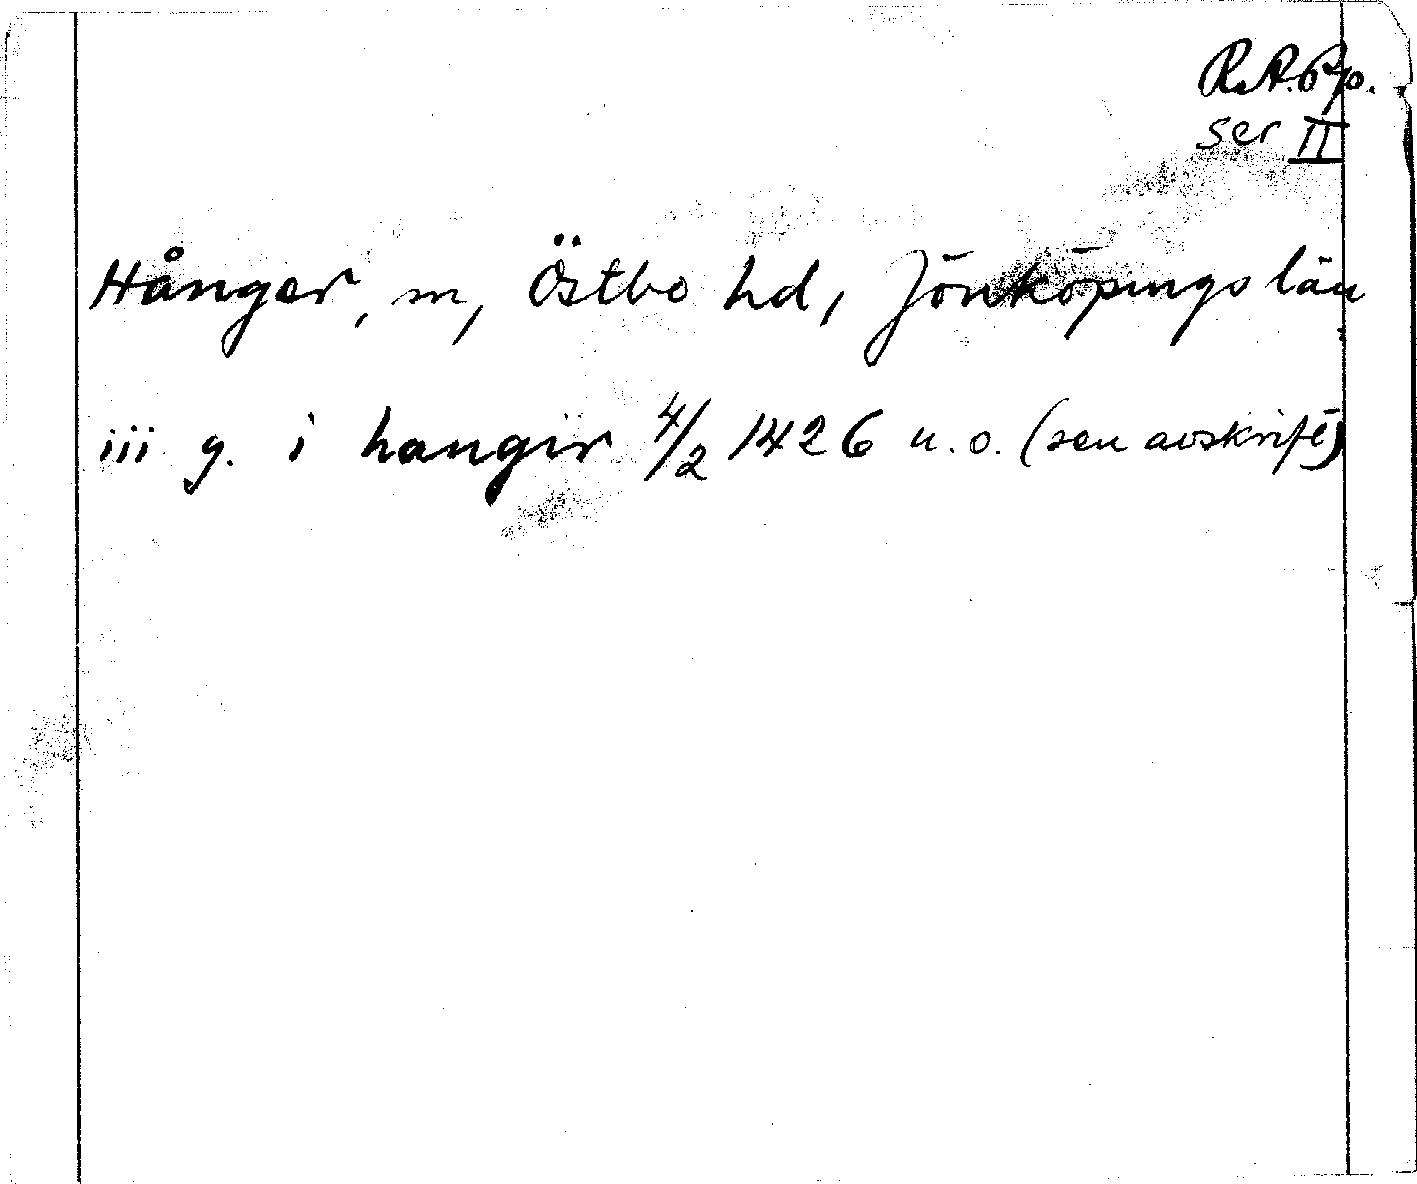 R.A. Pp.
ser II
Hånger, m, Östbo hd, Jönköpings län
iii g. i hangir 4/2 1426 u. o. (sen avskrift)